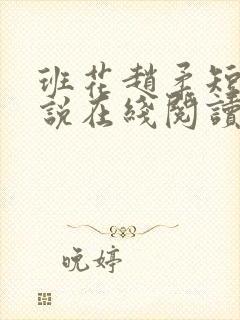 班花趙柔短
說在綫閱讀
晚婷